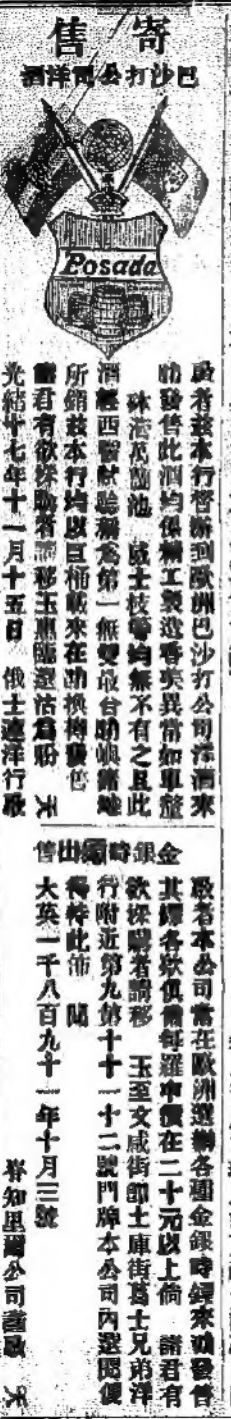 寄售
巴沙打公司洋酒
Posada
啟者茲本行督辦到歐洲巴沙打公司洋酒來
叻發售此酒均係精工製造香美異常如車釐
砵 威士枝等均無不有之且此
酒經西醫試驗稱爲第一無雙故合叻嶼
所銷茲本行均以巨桶載來在叻換樽發售
諸君有欲採購者請移玉惠臨選沽爲盼
光緒十七年十一月十五日 俄士連洋行啟
金銀時鏢出售
啟者本公司常在歐洲選辦各國金銀時鏢來叻發售
其鏢各欵俱備每羅申價在二十元以上倘 諸君有
欲採購者請移 玉至文咸街即土庫街葛士兄弟洋
行附近第九第十十一十二號門牌本公司內選閱價
此佈 聞
大英一千八百九十一年十月三號
知里爾公司謹啟